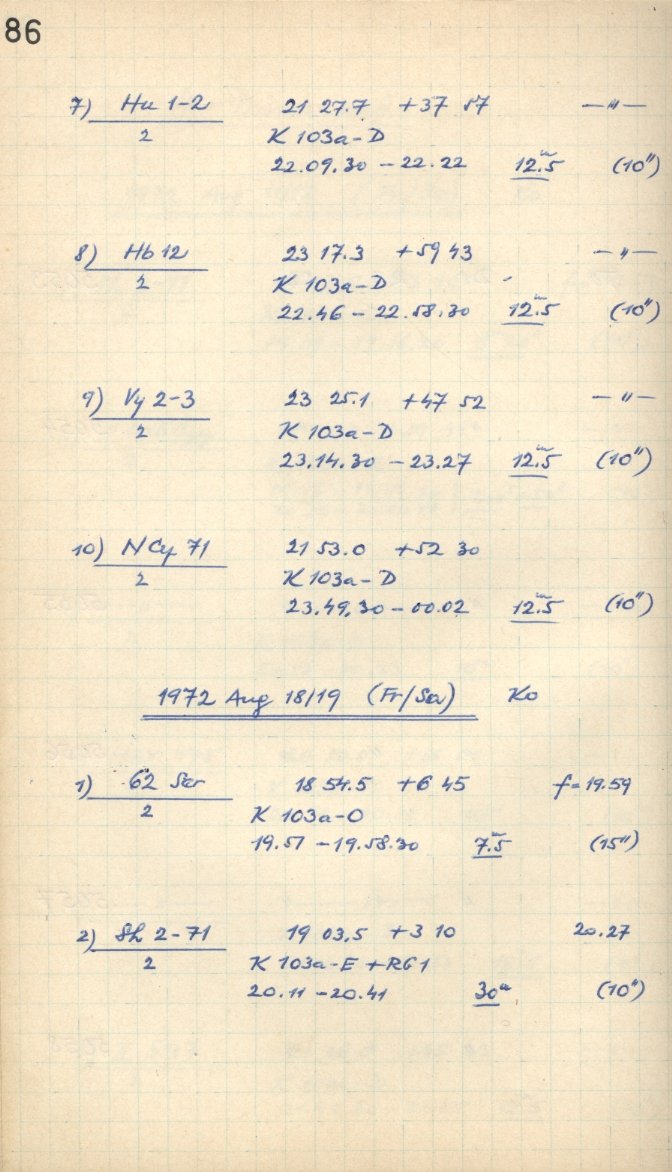 86
7) Hu 1-2 21 27.7 +37 57 —"—
2 K 103a-D
22.09.30 - 22.22 12.5ᵐ (10")
8) Hb 12 23 17.3 +59 43 —"—
2 K 103a-D
22.46 - 22.58.30 12.5ᵐ (10")
9) Vy 2-3 23 25.1 +47 52 —"—
2 K 103a-D
23.14.30 - 23.27 12.5ᵐ (10")
10) N Cy 71 21 53.0 +52 30
2 K 103a-D
23.49.30 - 00.02 12.5ᵐ (10")
1972 Aug 18/19 (Fr/Sa) Ko
1) 62 Ser 18 54.5 +6 45 f=19.59
2 K 103a-O
19.51 - 19.58.30 7.5ᵐ (15")
2) Sh 2-71 19 03.5 +3 10 20.27
2 K 103a-E +RG1
20.11 - 20.41 30ᵐ (10")